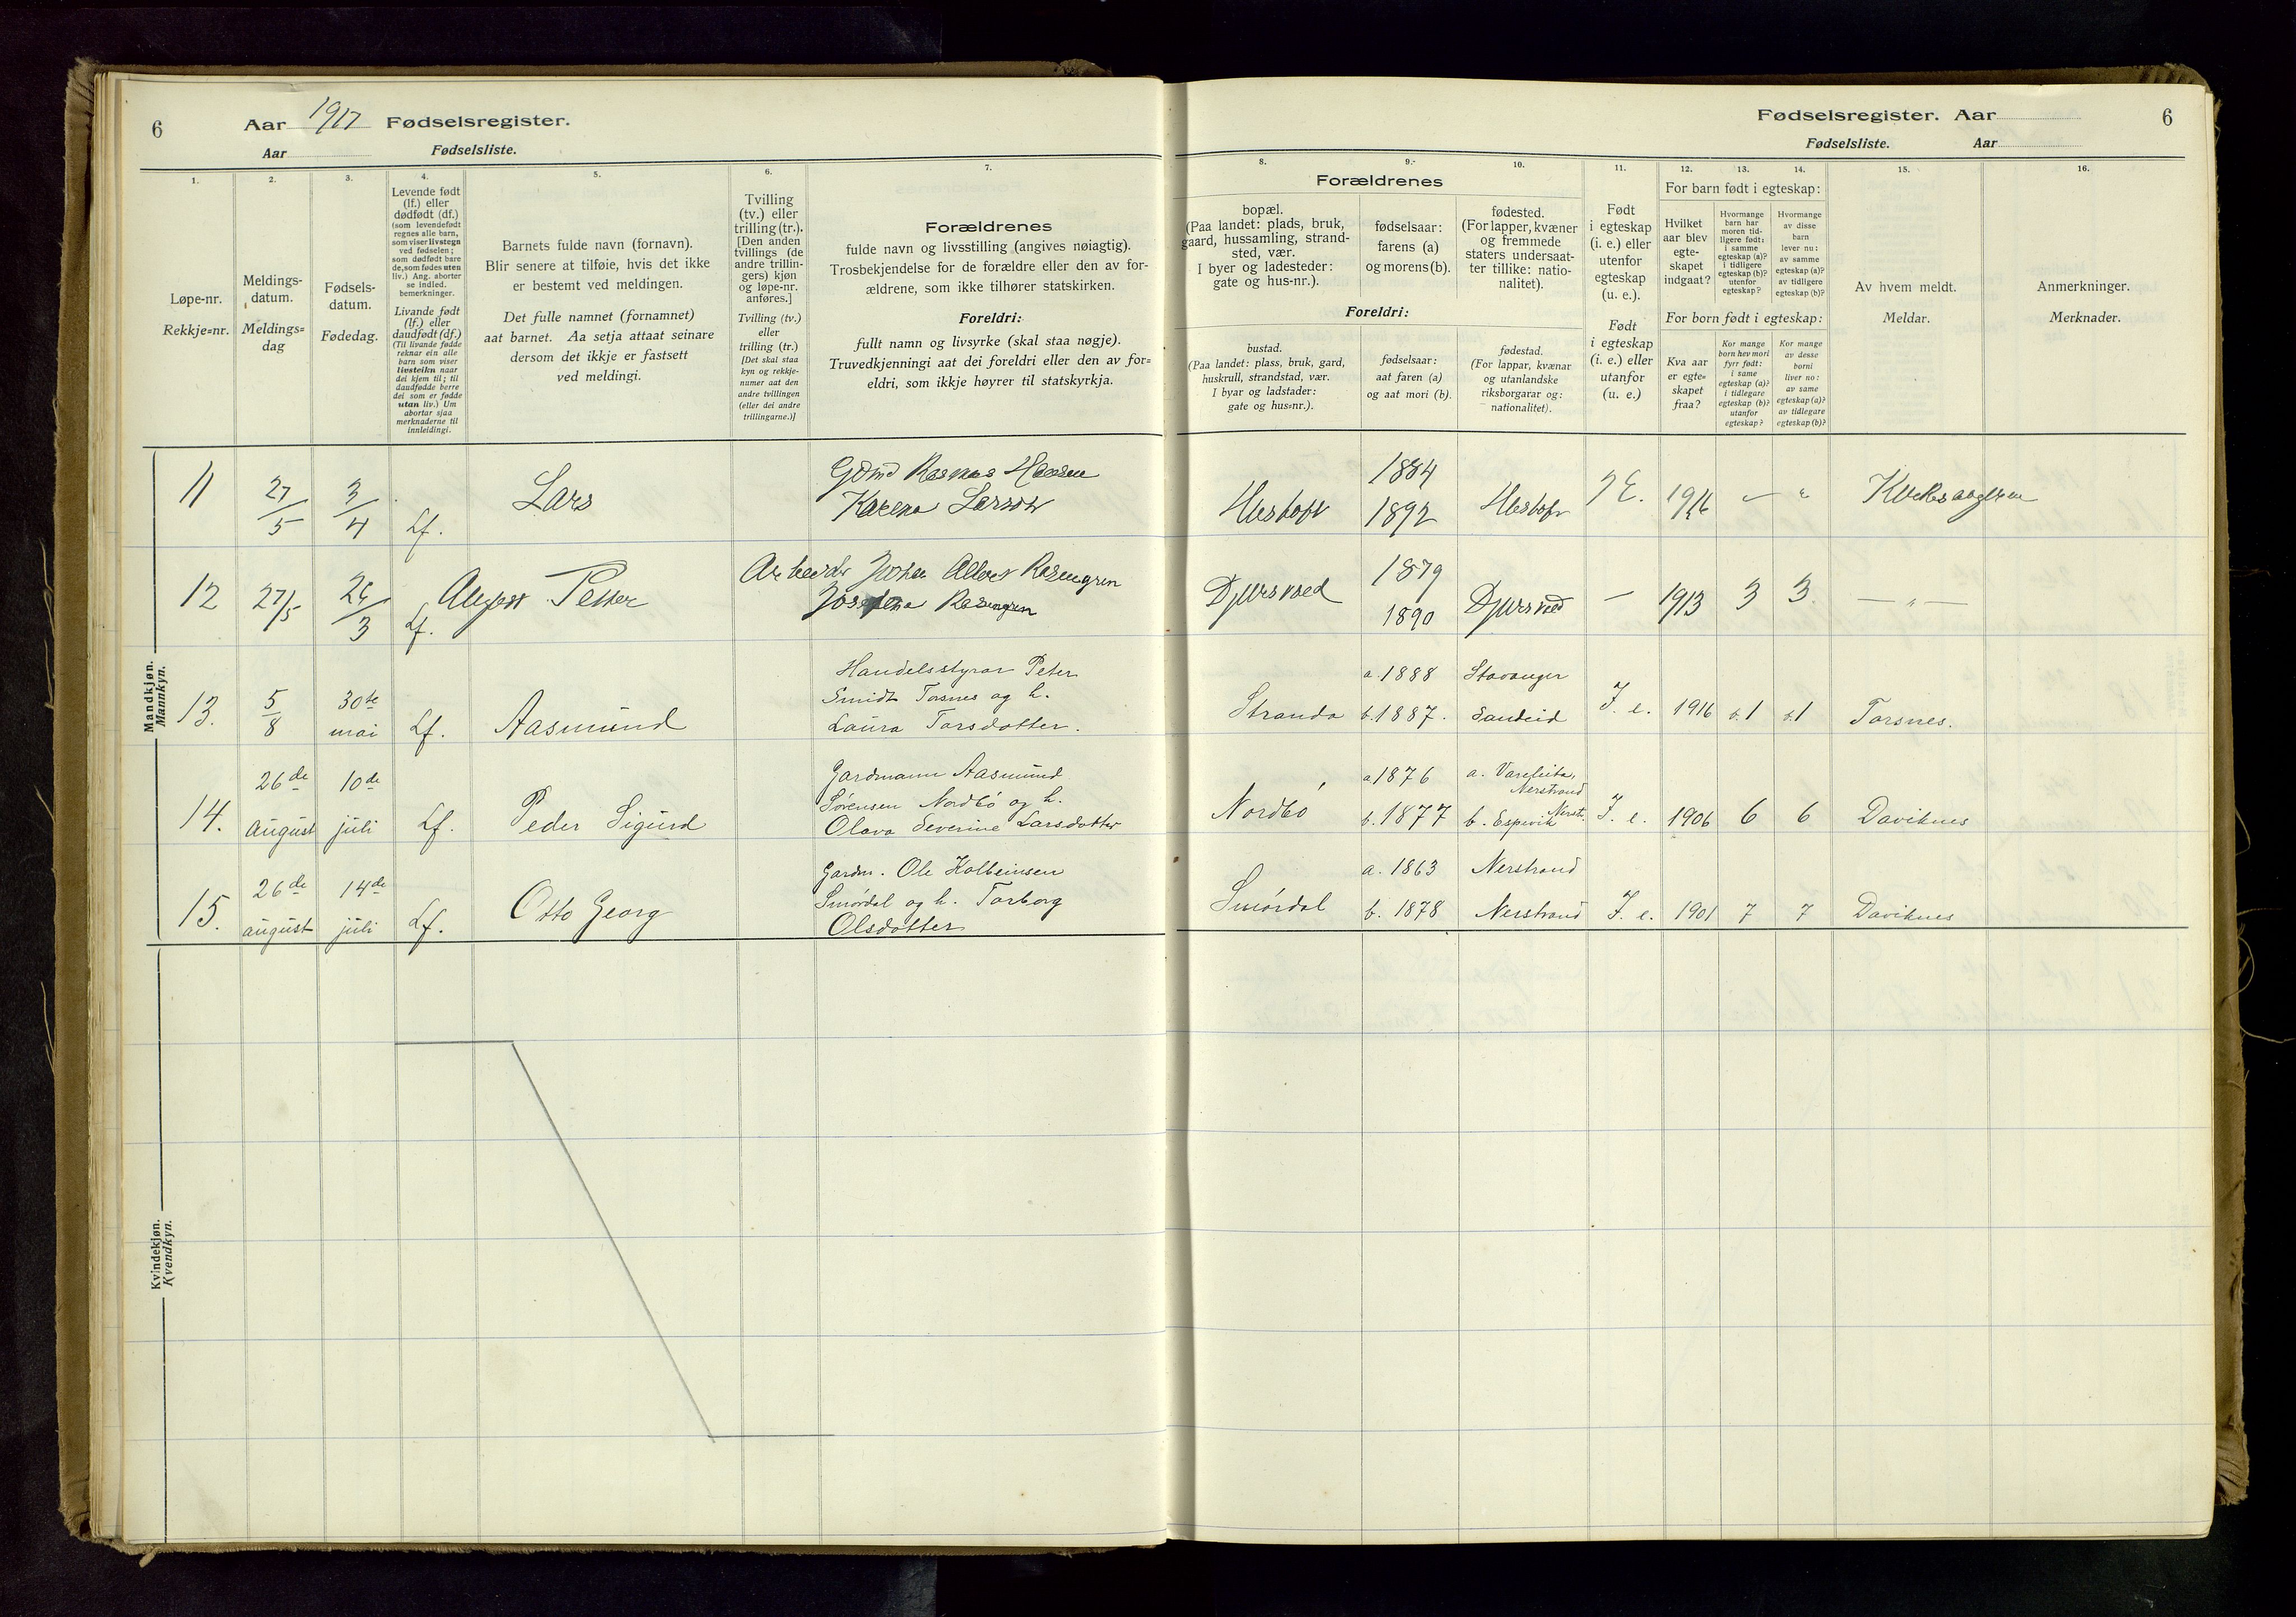 6
Aar 1917 Fødselsregister.
Aar Fødselsliste.
1.
Løpe-nr.
Rekkje=nr.
2.
Meldings-
datum.
Meldings=
dag
3.
Fødsels-
datum.
Fødedag.
4.
Levende født
(lf.) eller
dødfødt (df.)
(som levendefødt
regnes alle barn,
som viser livstegn
ved fødselen;
som dødfødt bare
de, som fødes uten
liv.) Ang. aborter
se indled.
bemerkninger.
Livande født
(lf.) eller
daudfødt (df.)
(Til livande fødde
reknar ein alle
barn som viser
livsteikn naar
dei kjem til; til
daudfødde berre
dei som er fødde
utan liv.) Um
abortar sjaa
merknaderne til
innleidingi.
5.
Barnets fulde navn (fornavn).
Blir senere at tilføie, hvis det ikke
er bestemt ved meldingen.
Det fulle namnet (fornamnet)
aat barnet. Aa setja attaat seinare
dersom det ikkje er fastsett
ved meldingi.
6.
Tvilling
(tv.) eller
trilling (tr.).
[Den anden
tvillings (de
andre trillin-
gers) kjøn
og løpe-nr.
anføres.]
Tvilling (tv.)
eller
trilling (tr.)
[Det skal staa
kyn og rekkje-
numer aat den
andre tvillingen
(eller dei andre
trillingarne.)]
7.
Forældrenes
fulde navn og livsstilling (angives nøiagtig).
Trosbekjendelse for de forældre eller den av for-
ældrene, som ikke tilhører statskirken.
Foreldri:
fullt namn og livsyrke (skal staa nøgje).
Truvedkjenningi aat dei foreldri eller den av for=
eldri, som ikkje høyrer til statskyrkja.
Fødselsregister. Aar 6
Fødselsliste. Aar
Forældrenes
8.
bopæl.
(Paa landet: plads, bruk,
gaard, hussamling, strand-
sted, vær.
I byer og ladesteder:
gate og hus-nr.).
9.
fødselsaar:
farens (a)
og morens (b).
10.
fødested.
(For lapper, kvæner
og fremmede
staters undersaat-
ter tillike: natio-
nalitet).
Foreldri:
bustad.
(Paa landet: plass, bruk, gard,
huskrull, strandstad, vær.
I byar og ladstader:
gate og hus=nr.).
fødselsaar:
aat faren (a)
og aat mori (b).
fødestad.
(For lappar, kvænar
og utanlandske
riksborgarar og:
nationalitet).
11.
Født
i egteskap
(i. e.) eller
utenfor
egteskap
(u. e.).
Født
i egteskap
(i. e.) eller
utanfor
(u. e.)
For barn født i egteskap:
12.
Hvilket
aar blev
egte-
skapet
indgaat?
13.
Hvormange
barn har
moren tid-
ligere født:
i samme
egteskap (a)?
i tidligere
egteskap (b)?
utenfor
egteskap?
14.
Hvormange
av disse
barn
lever nu:
av samme
egteskap (a)?
av tidligere
egteskap (b)?
For born født i egteskap:
Kva aar
er egte=
skapet
fraa?
Kor mange
born hev mori
fyrr født:
i same
egteskap (a)?
i tidlegare
egteskap (b)?
utanfor
egteskap?
Kor mange
av desse
borni
liver no:
av same
egteskap (a)?
av tidlegare
egteskap (b)?
15.
Av hvem meldt.
Meldar.
16.
Anmerkninger.
Merknader.
Mandkjøn.
Mannkyn.
11 27/5 3/4 Lf. Lars
Gdmd Rasmus Hansen
Karena Larsson
1884
1892
1916
12 27/5 26/3 Lf. August Petter
Arbeider Johan Albert Rosengren
Josefina Rosengren
Djursvoed 1879
1890 Djursvoed – 1913 3 3 — „ —
13. 5/8 30te mai Lf. Aasmund
Handelsstyrar Peter
Smidt Torsnes og h.
Laura Tarsdotter.
Stranda a. 1888 Stavanger
b. 1887. Sandeid I. e. 1916 b.1 b.1 Torsnes.
14. 26de august 10de juli Lf. Peder Sigurd
Gardmann Aasmund
Sørensen Nordbø og h.
Olava Severine Larsdotter
Nordbø a 1876 a. Nerstrand
b. 1877 b. Espevik Nerstr. I. e. 1906 6 6 Daviknes
15. 26de august 14de juli Lf. Otto Georg
Gardm. Ole Kolbeinsen
Smørdal og h. Torborg
Olsdotter
Smørdal a. 1863 Nerstrand
b. 1878 Nerstrand I. e. 1901 7 7 Daviknes
Kvindekjøn.
Kvendkyn.